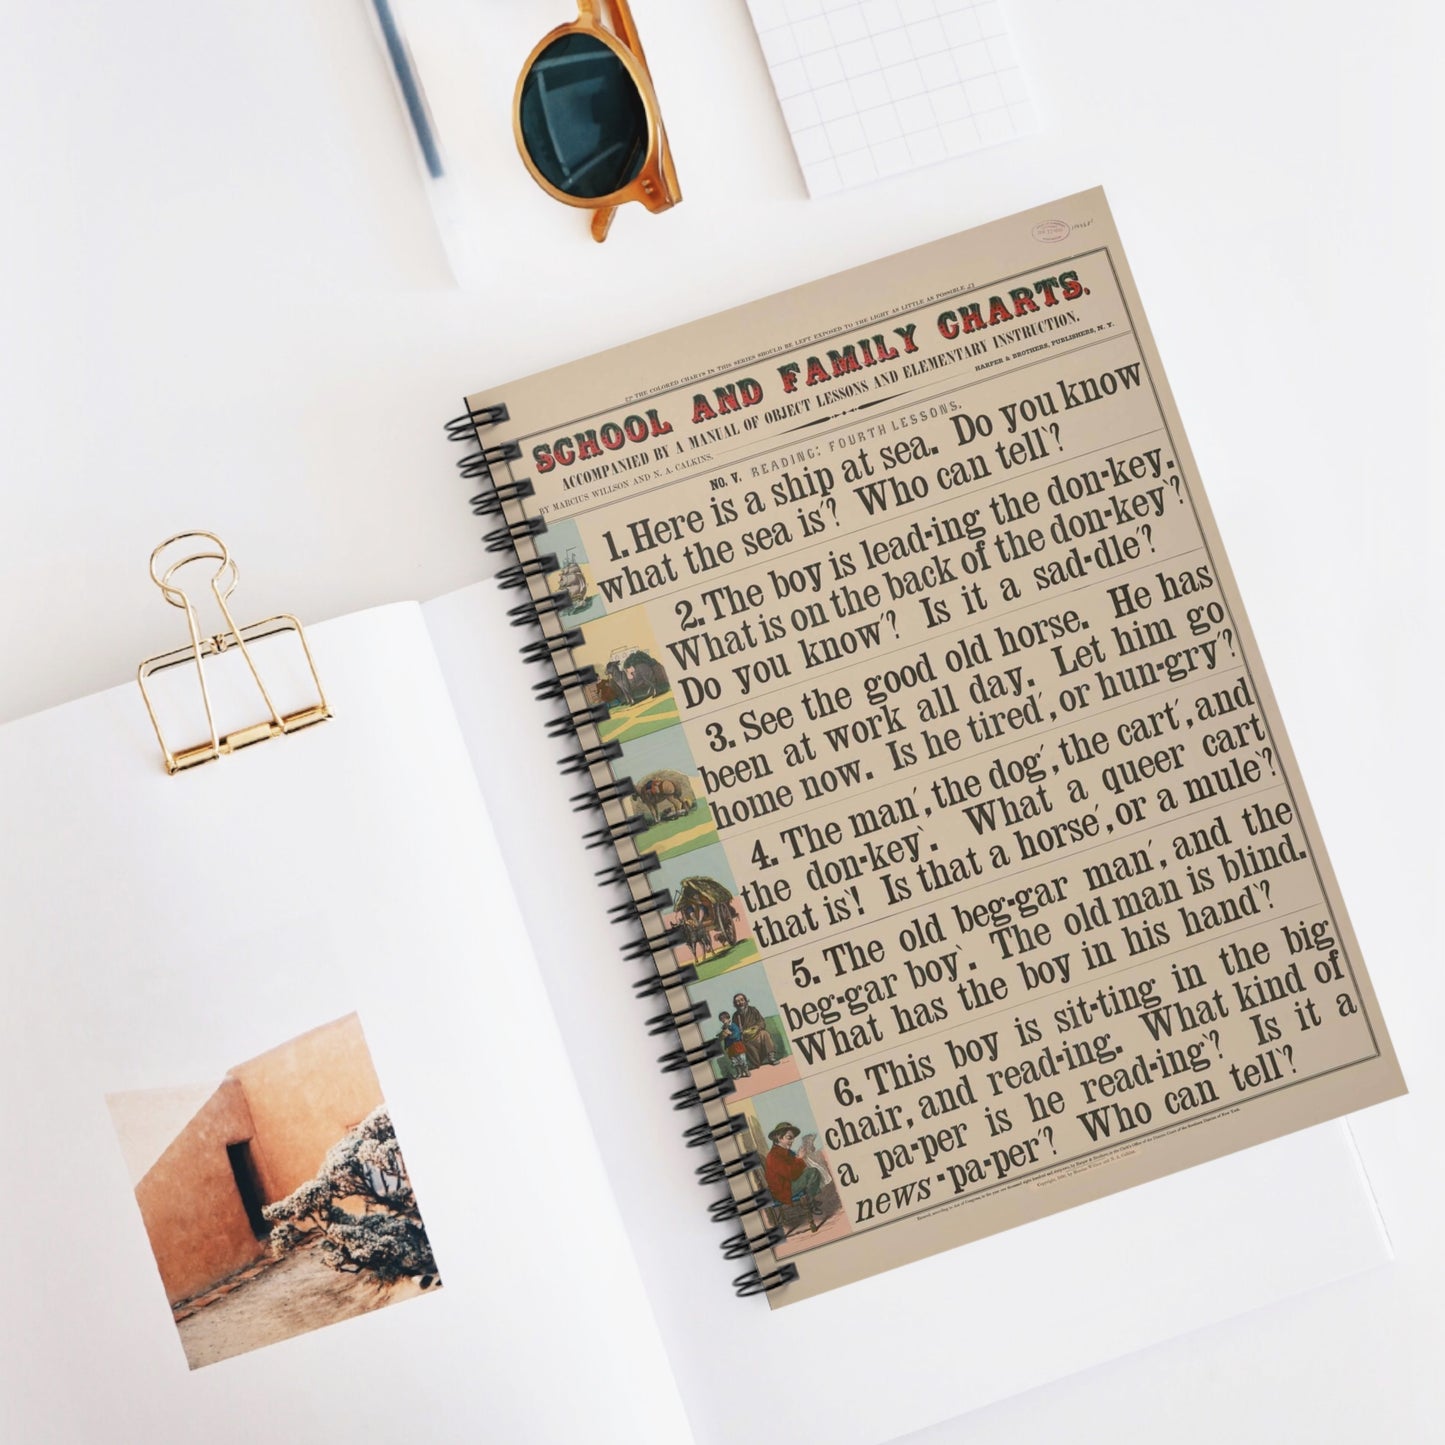 THE COLORED CHARTS IN THIS SERIES SHOULD BE LEFT EXPOSED TO THE LIGHT AS LITTLE AS POSSIBLE
SCHOOL AND FAMILY CHARTS.
ACCOMPANIED BY A MANUAL OF OBJECT LESSONS AND ELEMENTARY INSTRUCTION.
BY MARCIUS WILLSON AND N. A. CALKINS.
HARPER & BROTHERS, PUBLISHERS, N. Y.
NO. V. READING: FOURTH LESSONS.
1. Here is a ship at sea. Do you know
what the sea is′? Who can tell‵?
2. The boy is lead-ing the don-key.
What is on the back of the don-key‵?
Do you know′? Is it a sad-dle′?
3. See the good old horse. He has
been at work all day. Let him go
home now. Is he tired′, or hun-gry′?
4. The man′, the dog′, the cart′, and
the don-key‵. What a queer cart
that is‵! Is that a horse′, or a mule‵?
5. The old beg-gar man′, and the
beg-gar boy‵. The old man is blind.
What has the boy in his hand‵?
6. This boy is sit-ting in the big
chair, and read-ing. What kind of
a pa-per is he read-ing‵? Is it a
news-pa-per′? Who can tell‵?